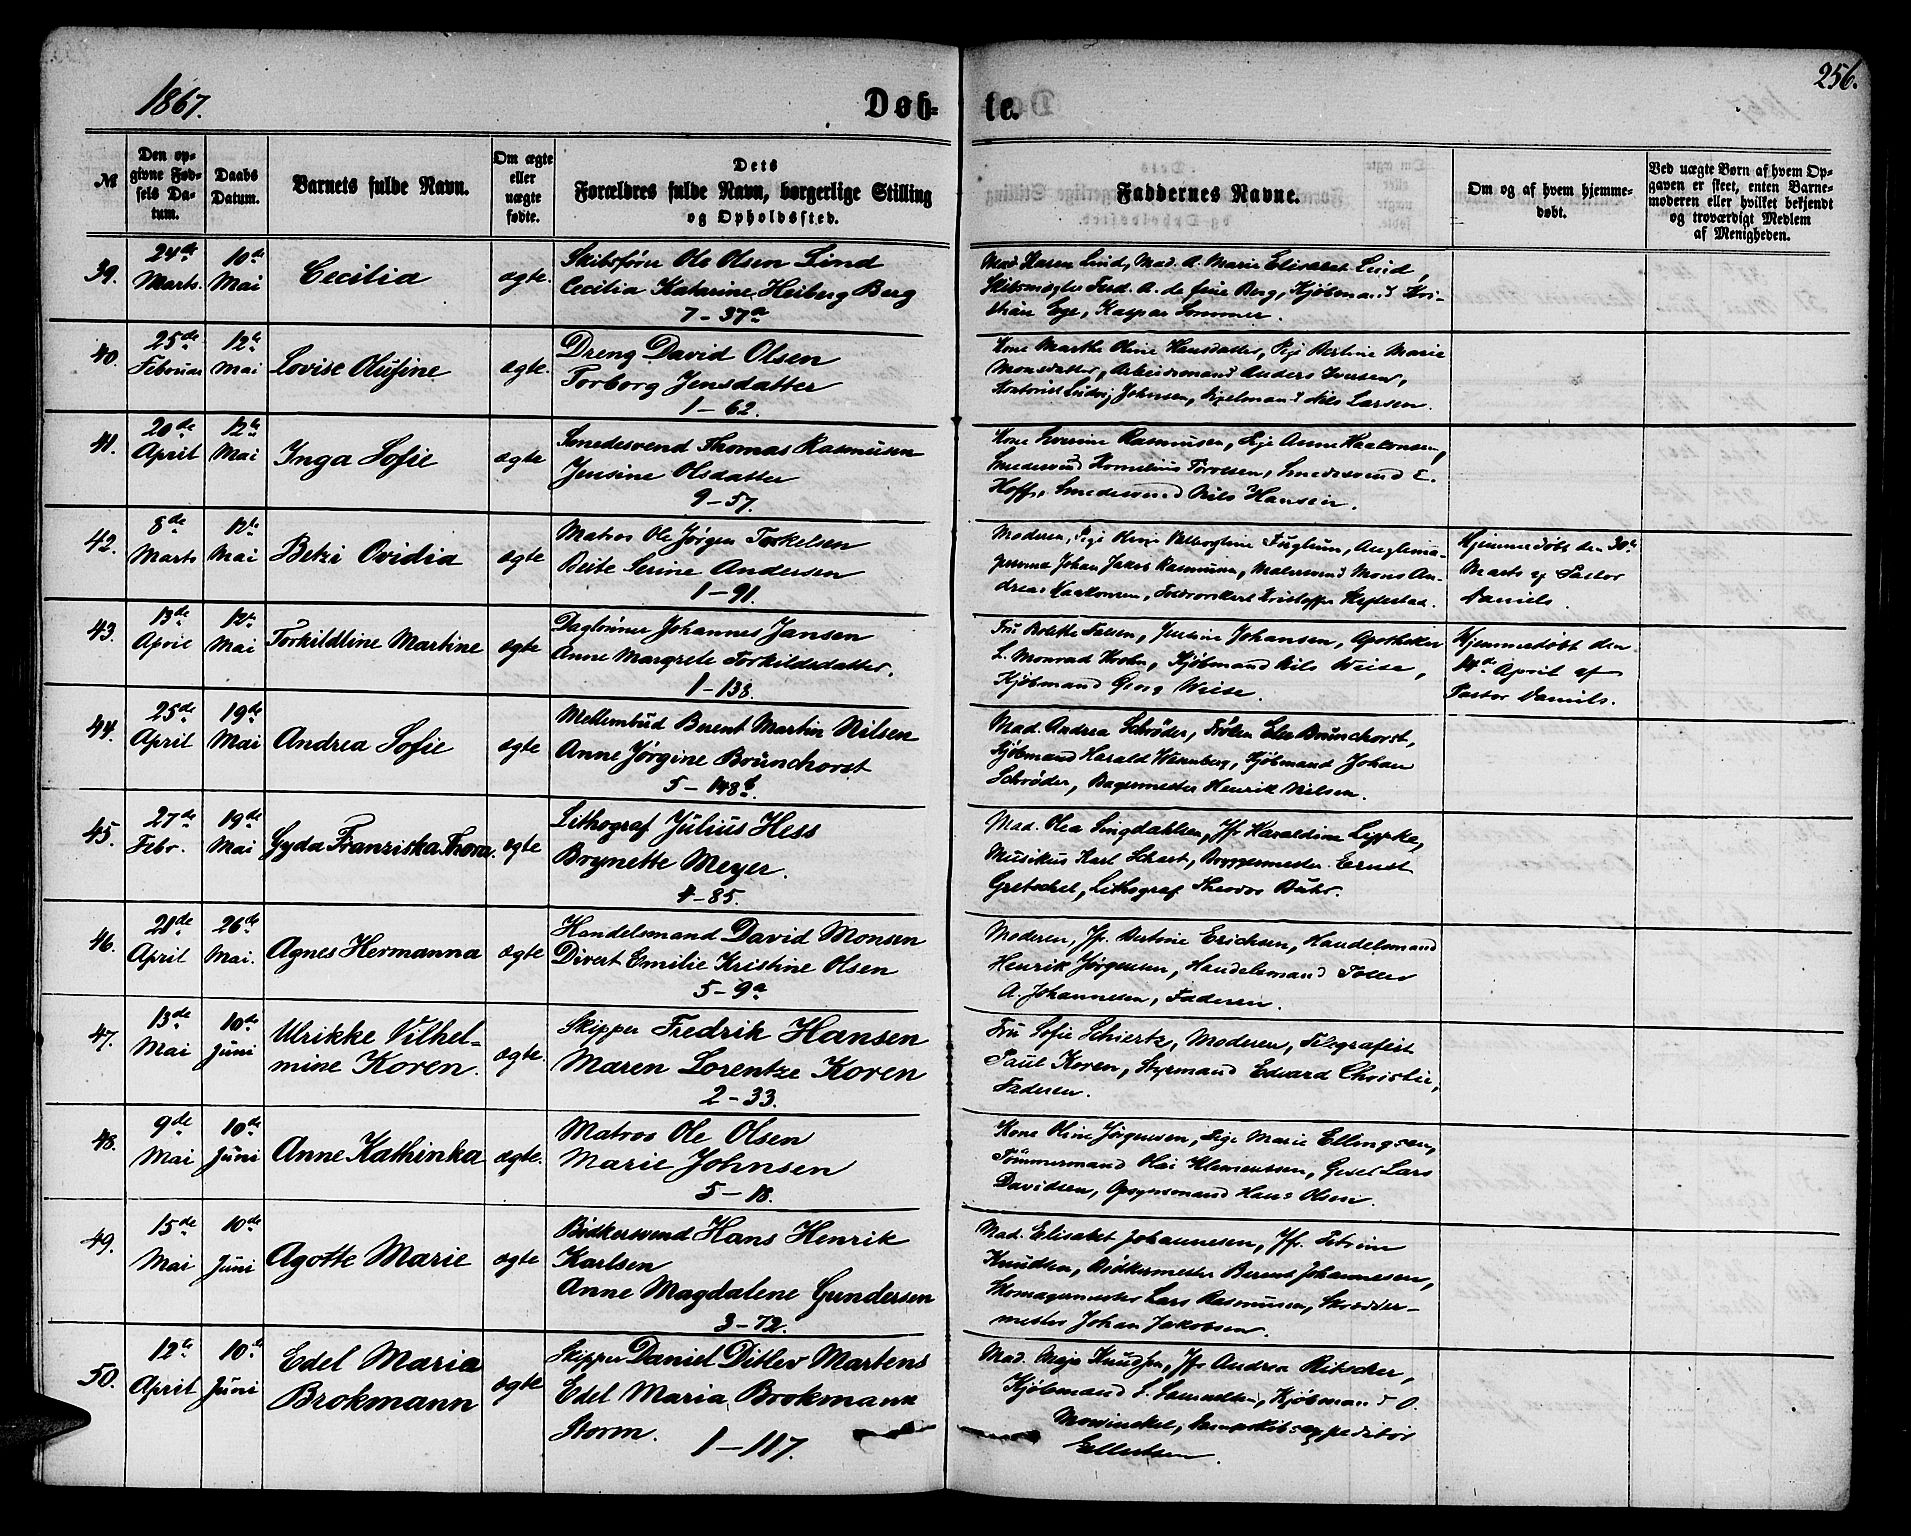 256.
1867.
Døb-
te.
№
Den op-
givne Fød-
sels Da-
tum.
Daabs
Datum.
Barnets fulde Navn.
Om ægte
eller
uægte
fødte.
Dets
Forældres fulde Navn, borgerlige Stilling
og Opholdssted.
Faddernes Navne.
Om og af hvem hjemme-
døbt.
Ved uægte Børn af hvem Op-
gaven er skeet, enten Barne-
moderen eller hvilket bekjendt
og troværdigt Medlem
af Menigheden.
39.
24de
Marts.
10de
Mai
Cecilia
ægte.
Skibsfører Ole Olsen Lind
Cecilia Katarine Heiberg Berg
7-37a
Mad Karen Lind, Mad. A. Marie Elisabet Lind,
Skibsmægler Ferd. A. de fine Berg, Kjøbmand Kri-
stian Ege, Kaspar Sommer.
40.
25de
Februar
12te
Mai
Lovise Olusine
ægte.
Dreng David Olsen
Torborg Jensdatter
1-62.
Kone Marthe Oline Hansdatter, Pige Bertine Marie
Monsdatter, Arbeidsmand Anders Iversen,
Kontorist Ludvig Johnsen, Kjelmand Nils Larsen.
41.
20de
April
12te
Mai
Inga Sofie
ægte
Smedesvend Thomas Rasmusen
Jensine Olsdatter
9-57.
Kone Severine Rasmusen, Pige Anne Haakonsen,
Smedesvend Kornelius Torolsen, Smedesvend E.
Hoff, Smedesvend Nils Hansen.
42.
8de
Marts
12te
Mai
Betzi Ovidia
ægte
Matros Ole Jørgen Torkelsen
Beite Serine Andersen
1-91.
Moderen, Pige Valborgine Fuglrun,
Johan Jakob Rasmusen, Malersvend Mons An-
dreas Haakonsen, Kristoffer
Hjemmedøbt den 30te
Marts af Pastor
Daniels.
43.
13de
April
12te
Mai
Torkildline Martine
ægte
Daglønner Johannes Jansen
Anne Margrete Torkildsdatter.
1-138.
Fru Bolette Falsen, Justine Johansen, Apotheker
L. Monrad Krohn, Kjøbmand Nils Weise,
Kjøbmand Georg Weise.
Hjemmedøbt den
14de April af
Pastor Daniels.
44.
25de
April
19de
Mai
Andrea Sofie
ægte
Mellembud Berent Martin Nilsen
Anne Jørgine Brünchorst
5-148b.
Mad. Andrea Schrøder, Frøken Elen Brünchorst,
Kjøbmand Harald Wesenberg, Kjøbmand Johan
Schrøder, Bagermester Henrik Nilsen.
45.
27de
Febr.
19de
Mai
Gyda Franziska Thora.
ægte
Lithograf Julius Hess
Brynette Meyer.
4-85.
Mad. Olea Singdahlsen, Jfr Haraldine Lippke,
Musikus Karl Schart, Bryggermester Ernst
Gretschel, Lithograf Theodor Buhr.
46.
21de
April
26de
Mai.
Agnes Hermanna
ægte
Handelsmand David Monsen
Divert Emilie Kristine Olsen
5-9a
Moderen, Jfr. Bertine Erichsen, Handelsmand
Henrik Jørgensen, Handelsmand Toller
A. Johannesen, Faderen.
47.
13de
Mai
10de
Juni
Ulrikke Vilhel-
mine Koren.
ægte.
Skipper Fredrik Hansen
Maren Lorentze Koren
2-33.
Fru Sofie Schiertz, Moderen, Telegrafist
Paul Koren, Styrmand Edvard Christie,
Faderen.
48.
9de
Mai
10de
Juni
Anne Kathinka
ægte.
Matros Ole Olsen
Marie Johnsen
5-18.
Kone Oline Jørgensen, Pige Marie Ellingsen,
Tømmermand Olai Klemensen, Gesel Lars
Davidsen, Opsynsmand Hans Olsen.
49.
15de
Mai
10de
Juni
Agotte Marie
ægte
Bødkersvend Hans Henrik
Karlsen
Anne Magdalene Gundersen
3-72.
Mad. Elisabet Johannesen, Jfr. Petrine
Knudsen, Bødkermester Berent Johannesen,
Skomagermester Lars Rasmusen, Skrædder-
mester Johan Jakobsen.
50.
12te
April
10de
Juni
Edel Maria
Brokmann
ægte
Skipper Daniel Ditlev Martens
Edel Maria Brokmann
Storm.
1-117.
Mad. Maja Knudsen, Jfr Andrea Ritscher,
Kjøbmand S. Samuelsen, Kjøbmand O.
Mowinckel, Dampskibsexpeditør
Ellertsen.